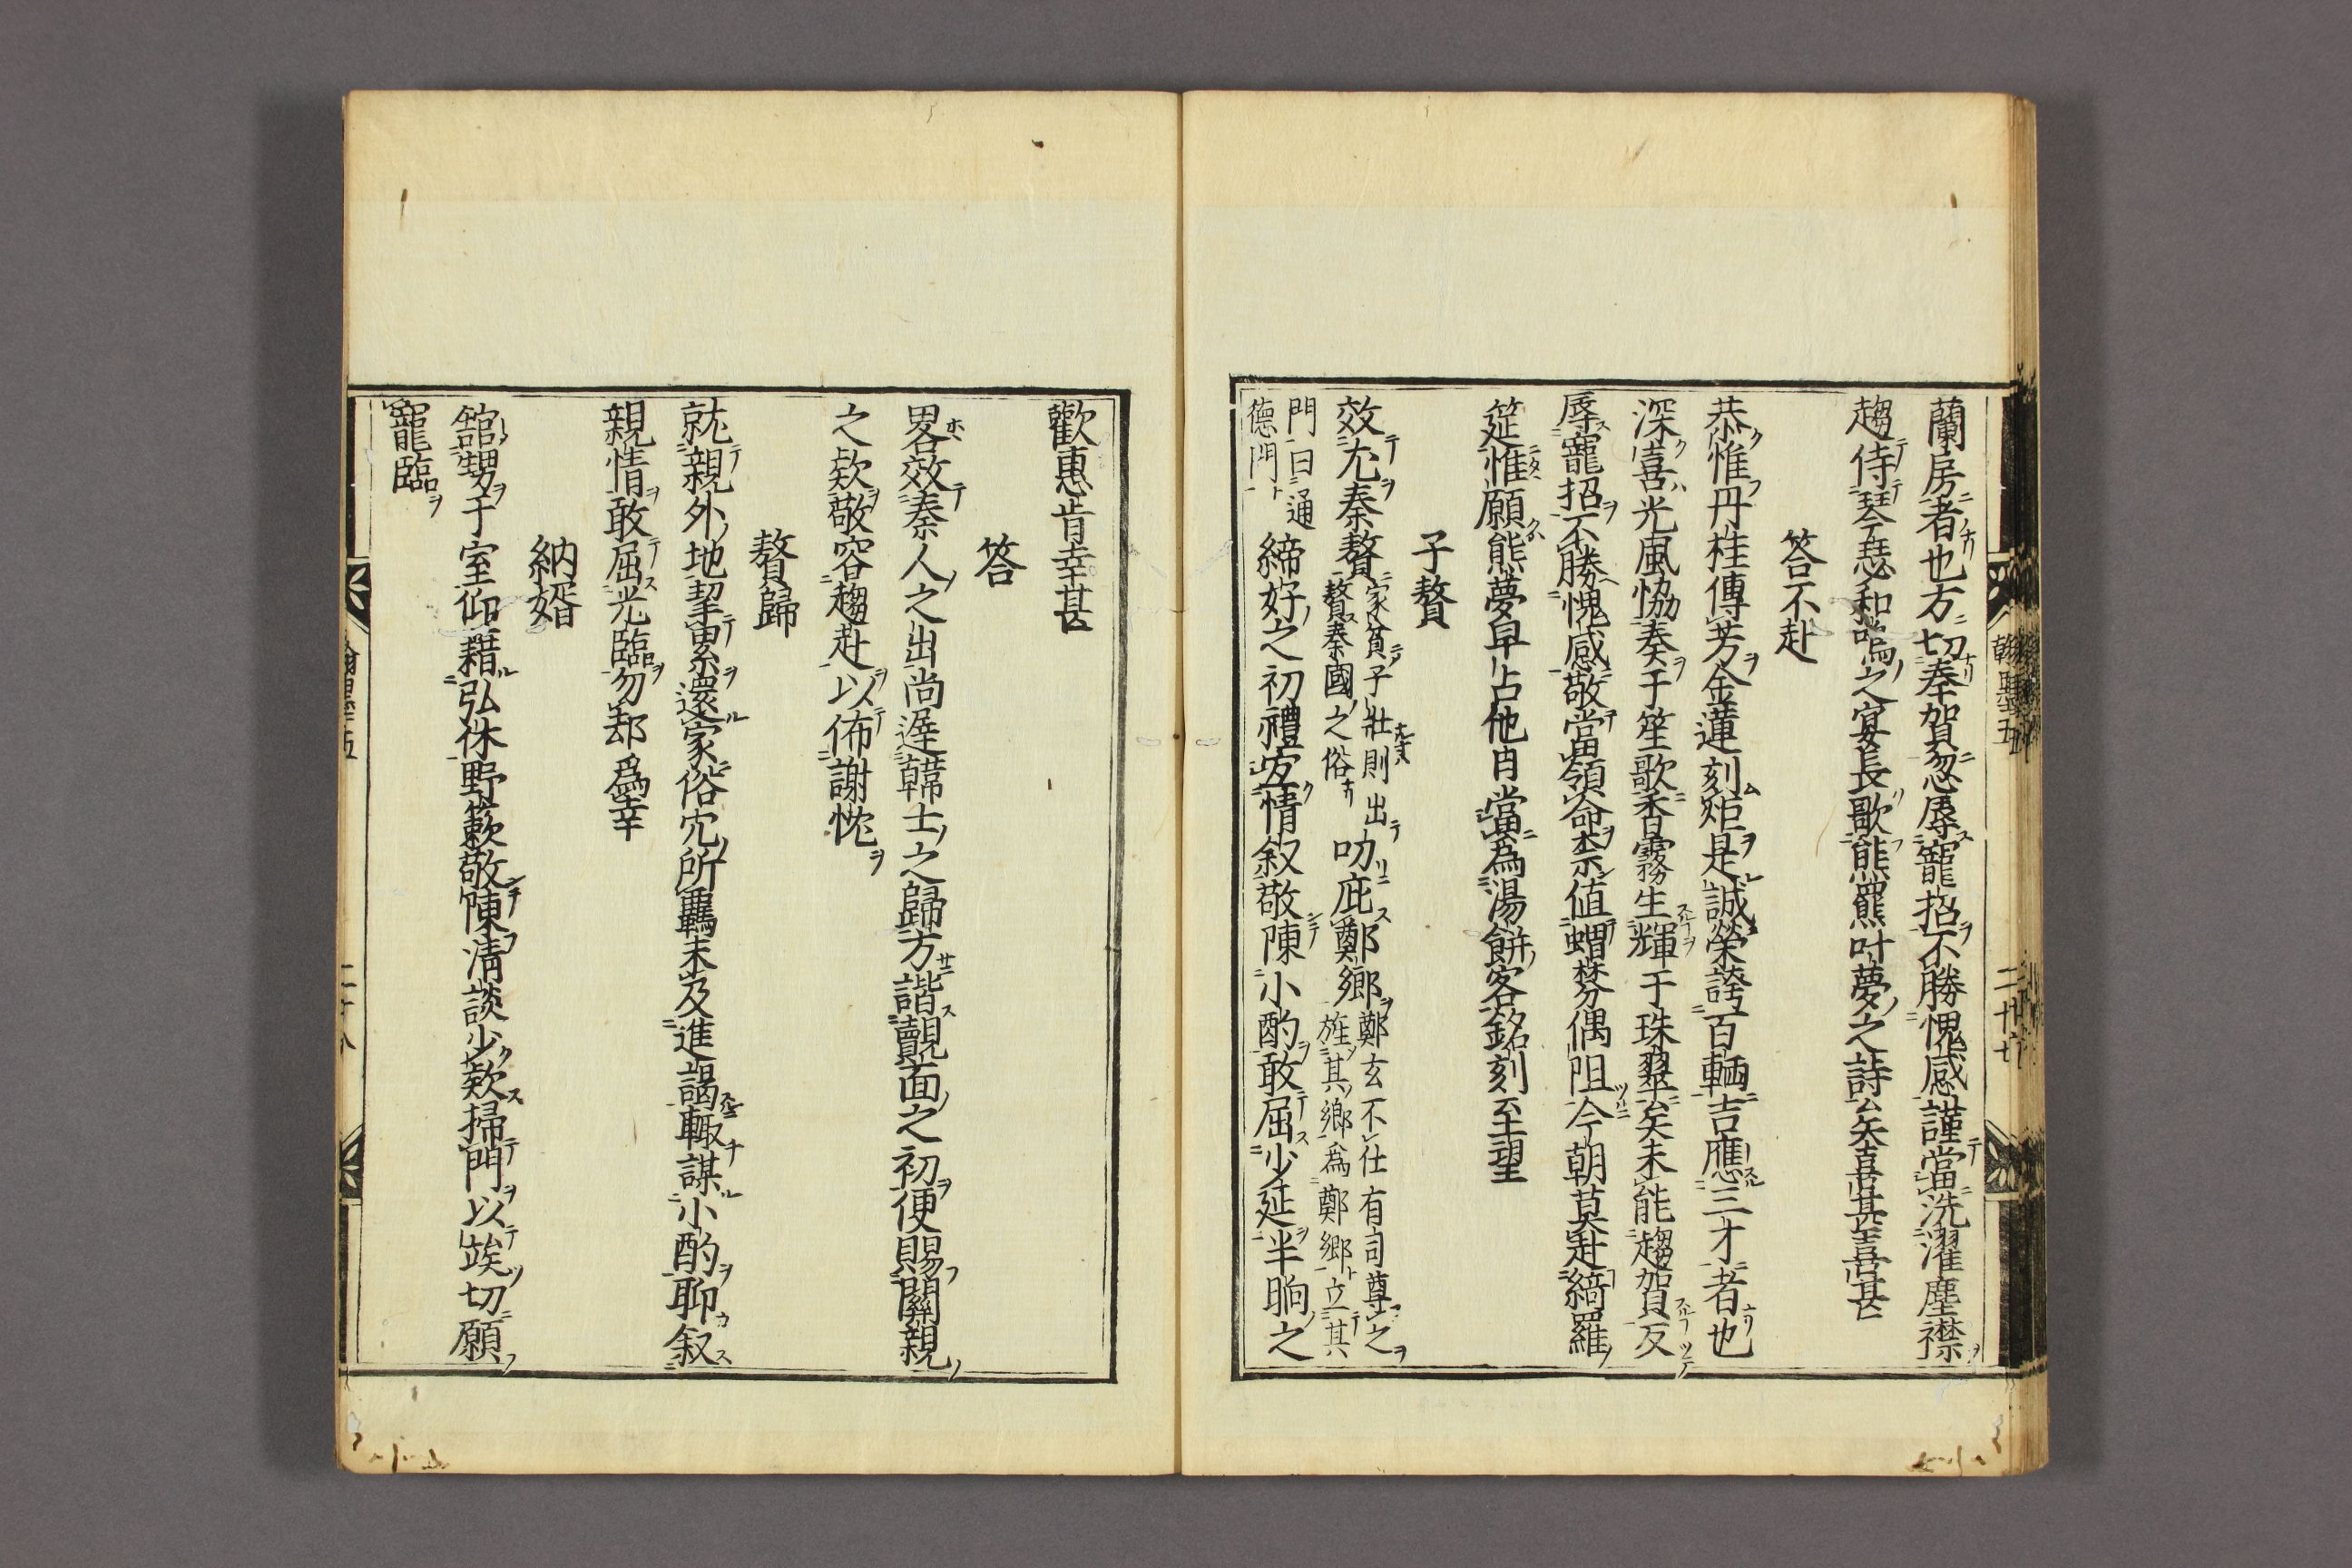 蘭房者也方切奉賀忽辱寵招不勝愧感謹當洗濯塵襟
趨侍琴瑟和鳴之宴長歌熊羆叶夢之詩矣喜甚喜甚
答不赴
恭惟丹桂傳芳金蓮刻炬是誠榮誇百輛吉應三才者也
深喜光風恊奏于笙歌香霧生輝于珠翠矣未能趨賀反
辱寵招不勝愧感敬當領命柰値蝟棼偶阻今朝莫赴綺羅
筵惟願熊夢早占他日當為湯餅客銘刻至望
子贅
效尤秦贅家貧子壯則出贅秦國之俗叨庇鄭鄉鄭玄不仕有司尊之旌其鄉為鄭鄉立其
門曰通德門締好之初禮宜情叙敬陳小酌敢屈少延半晌之
翰墨五
二十七
歡惠肯幸甚
答
畧效秦人之出尚遅韓士之歸方諧覿面之初便賜關親
之欵敬容趨赴以佈謝忱
贅歸
就親外地挈累還家俗宂所羈未及進謁輙謀小酌聊叙
親情敢屈光臨勿却爲幸
納婿
舘甥于室仰藉弘休野蔌敬陳清談少欵掃門以竢切願
寵臨